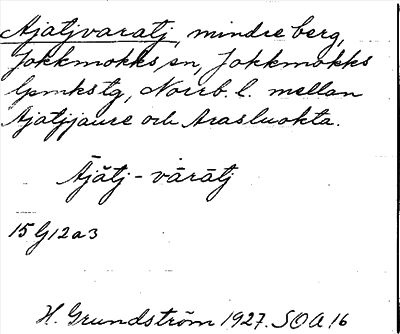 Ajatjvaratj, mindre berg,
Jokkmokks sn, Jokkmokks
lpmkstg, Norrb. l. mellan
Ajatjjaure och Arasluokta.
Äjàtj - vārātj
15 G 12 a 3
H. Grundström 1927. SOA 16